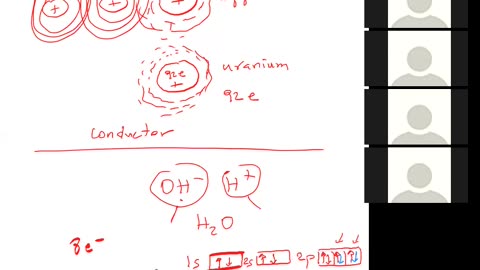 + + +
92e uranium
+
92e
conductor
OH⁻ H⁺
H₂O
8e⁻
1s ↑↓ 2s ↑↓ 2p ↑↓ ↑↓ ↑↓